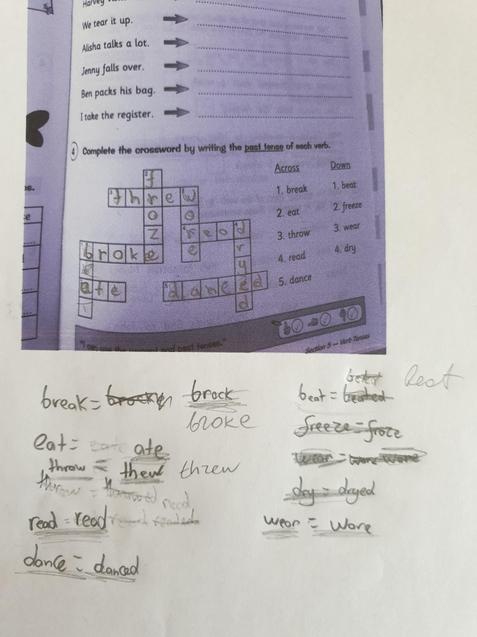 Harvey
We tear it up.
Alisha talks a lot.
Jenny falls over.
Ben packs his bag.
I take the register.
4 Complete the crossword by writing the past tense of each verb.
Across Down
1. break 1. beat
2. eat 2. freeze
3. throw 3. wear
4. read 4. dry
5. dance
f
threw
o o
z read
broke e r
e y
ate danced
d
Section 5 — Verb Tenses
break = brock
broke
beat = beated beat
eat = ate
freeze = froze
throw = thew threw
wear = wore wore
throw =
dry = dryed
read = read
wear = wore
dance = danced